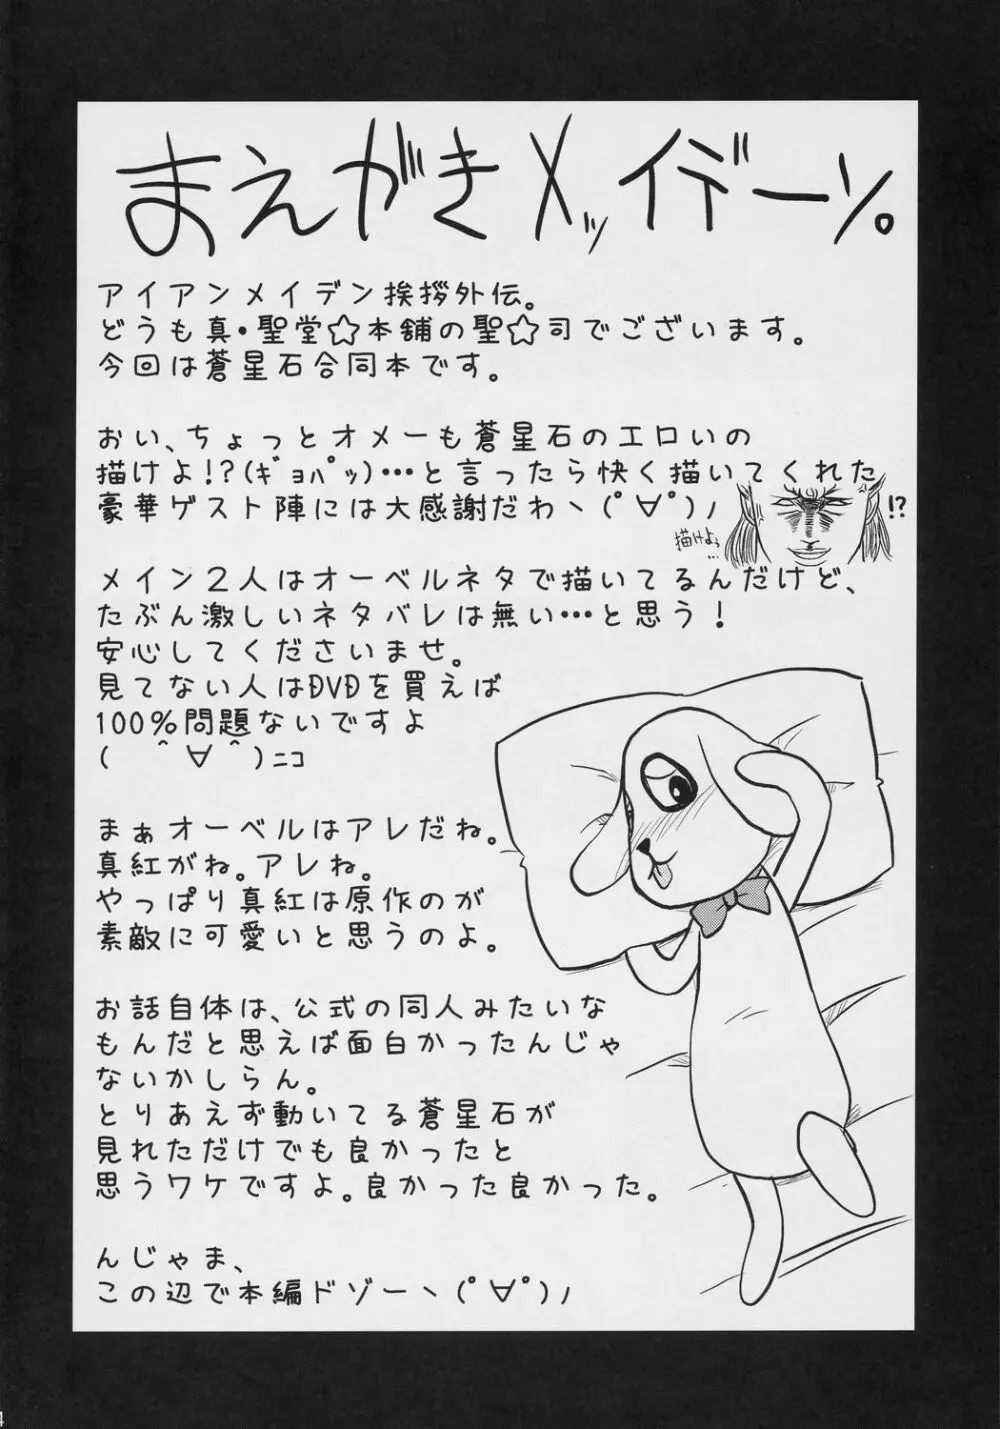 まえがきメッイデーン。
アイアンメイデン挨拶外伝。
どうも真・聖堂☆本舗の聖☆司でございます。
今回は蒼星石合同本です。
おい、ちょっとオメーも蒼星石のエロいの
描けよ!?(ｷﾞｮﾊﾟｯ)…と言ったら快く描いてくれた
豪華ゲスト陣には大感謝だわヽ(ﾟ∀ﾟ)ﾉ
!?
描けよぅ
…
メイン2人はオーベルネタで描いてるんだけど、
たぶん激しいネタバレは無い…と思う!
安心してくださいませ。
見てない人はDVDを買えば
100%問題ないですよ
( ＾∀＾)ﾆｺ
まぁオーベルはアレだね。
真紅がね。アレね。
やっぱり真紅は原作のが
素敵に可愛いと思うのよ。
お話自体は、公式の同人みたいな
もんだと思えば面白かったんじゃ
ないかしらん。
とりあえず動いてる蒼星石が
見れただけでも良かったと
思うワケですよ。良かった良かった。
んじゃま、
この辺で本編ドゾーヽ(ﾟ∀ﾟ)ﾉ
4